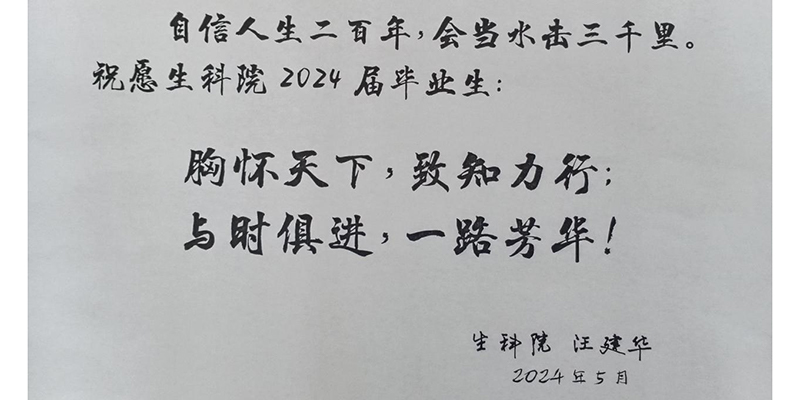 自信人生二百年，会当水击三千里。
祝愿生科院2024届毕业生：
胸怀天下，致知力行；
与时俱进，一路芳华！
生科院 汪建华
2024年5月